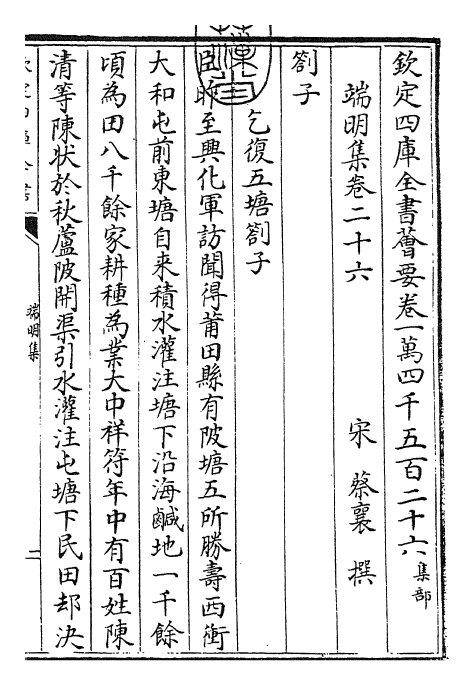 欽定四庫全書薈要卷一萬四千五百二十六集部
端明集卷二十六
宋 蔡襄 撰
劄子
乞復五塘劄子
臣昨至興化軍訪聞得莆田縣有陂塘五所勝壽西衝
大和屯前東塘自来積水灌注塘下沿海鹹地一千餘
頃為田八千餘家耕種為業大中祥符年中有百姓陳
清等陳状於秋蘆陂開渠引水灌注屯塘下民田却決
端明集
二